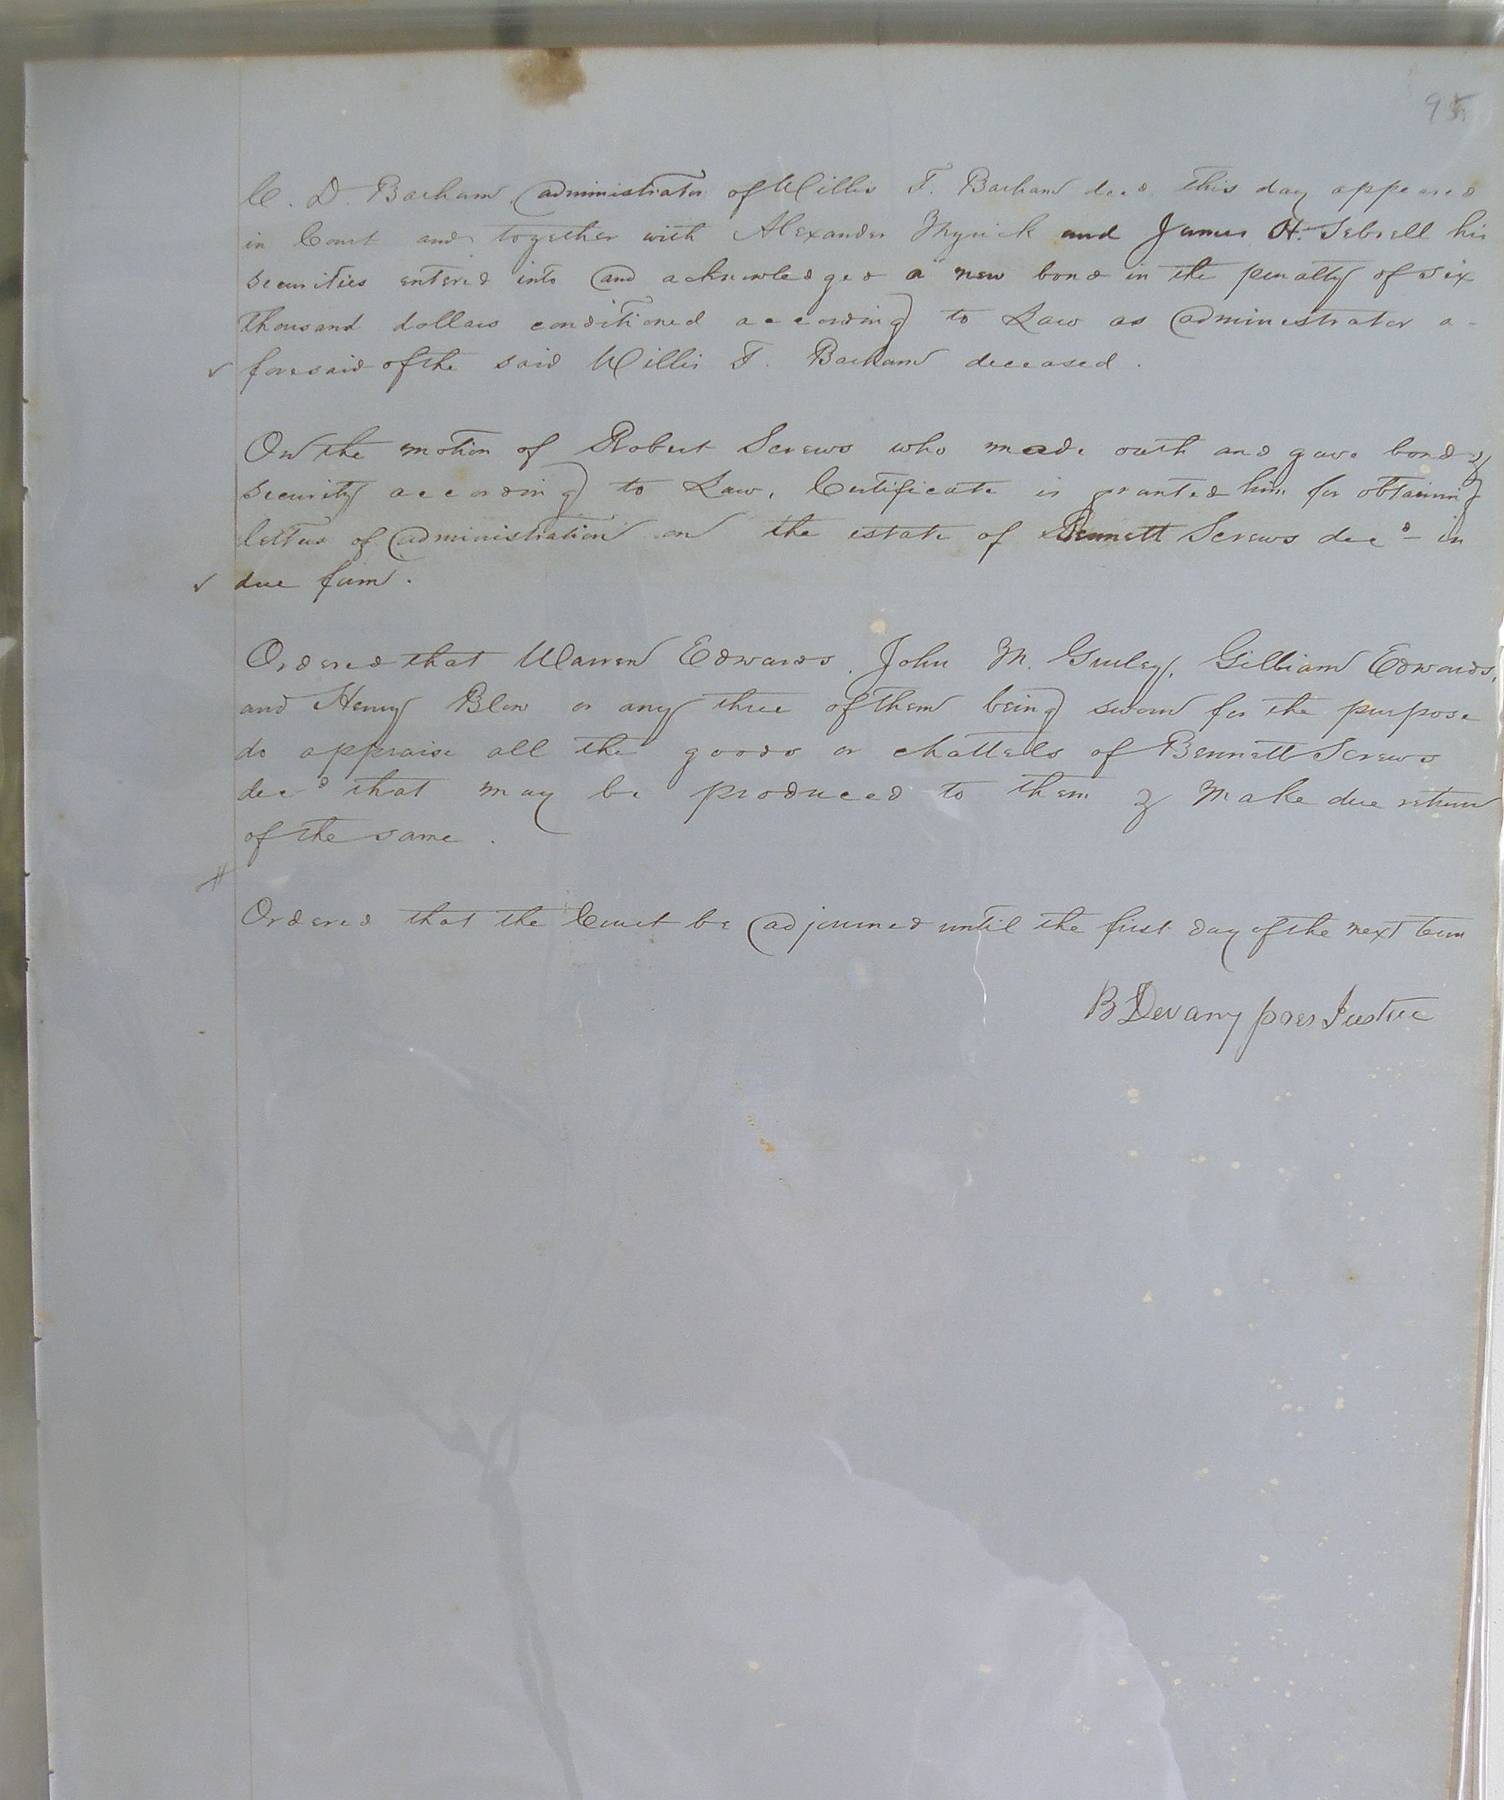 95
C. D. Barham administrator of Willis T. Barham decd this day appeared
in Court and together with Alexander Myrick and James H. Sebrell his
securities entered into and acknowledged a new bond in the penalty of six
thousand dollars conditioned according to Law as administrator a-
foresaid of the said Willis T. Barham deceased.
On the motion of Robert Screws who made oath and gave bond &
security according to Law, Certificate is granted him for obtaining
letters of administration on the estate of Bennett Screws decd in
due form.
Ordered that Warren Edwards, John M. Gurley, Gilliam Edwards,
and Henry Blow or any three of them being sworn for the purpose
do appraise all the goods or chattels of Bennett Screws
decd that may be produced to them & make due return
of the same.
Ordered that the Court be adjourned until the first day of the next term
B Devany pres Justice